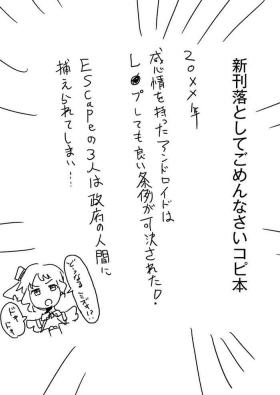 新刊落としてごめんなさいコピ本
20XX年
感情を持ったアンドロイドは
L●プしても良い条例が可決された!
EScapeの3人は政府の人間に
捕えられてしまい…
どうなる
ミズキ!?